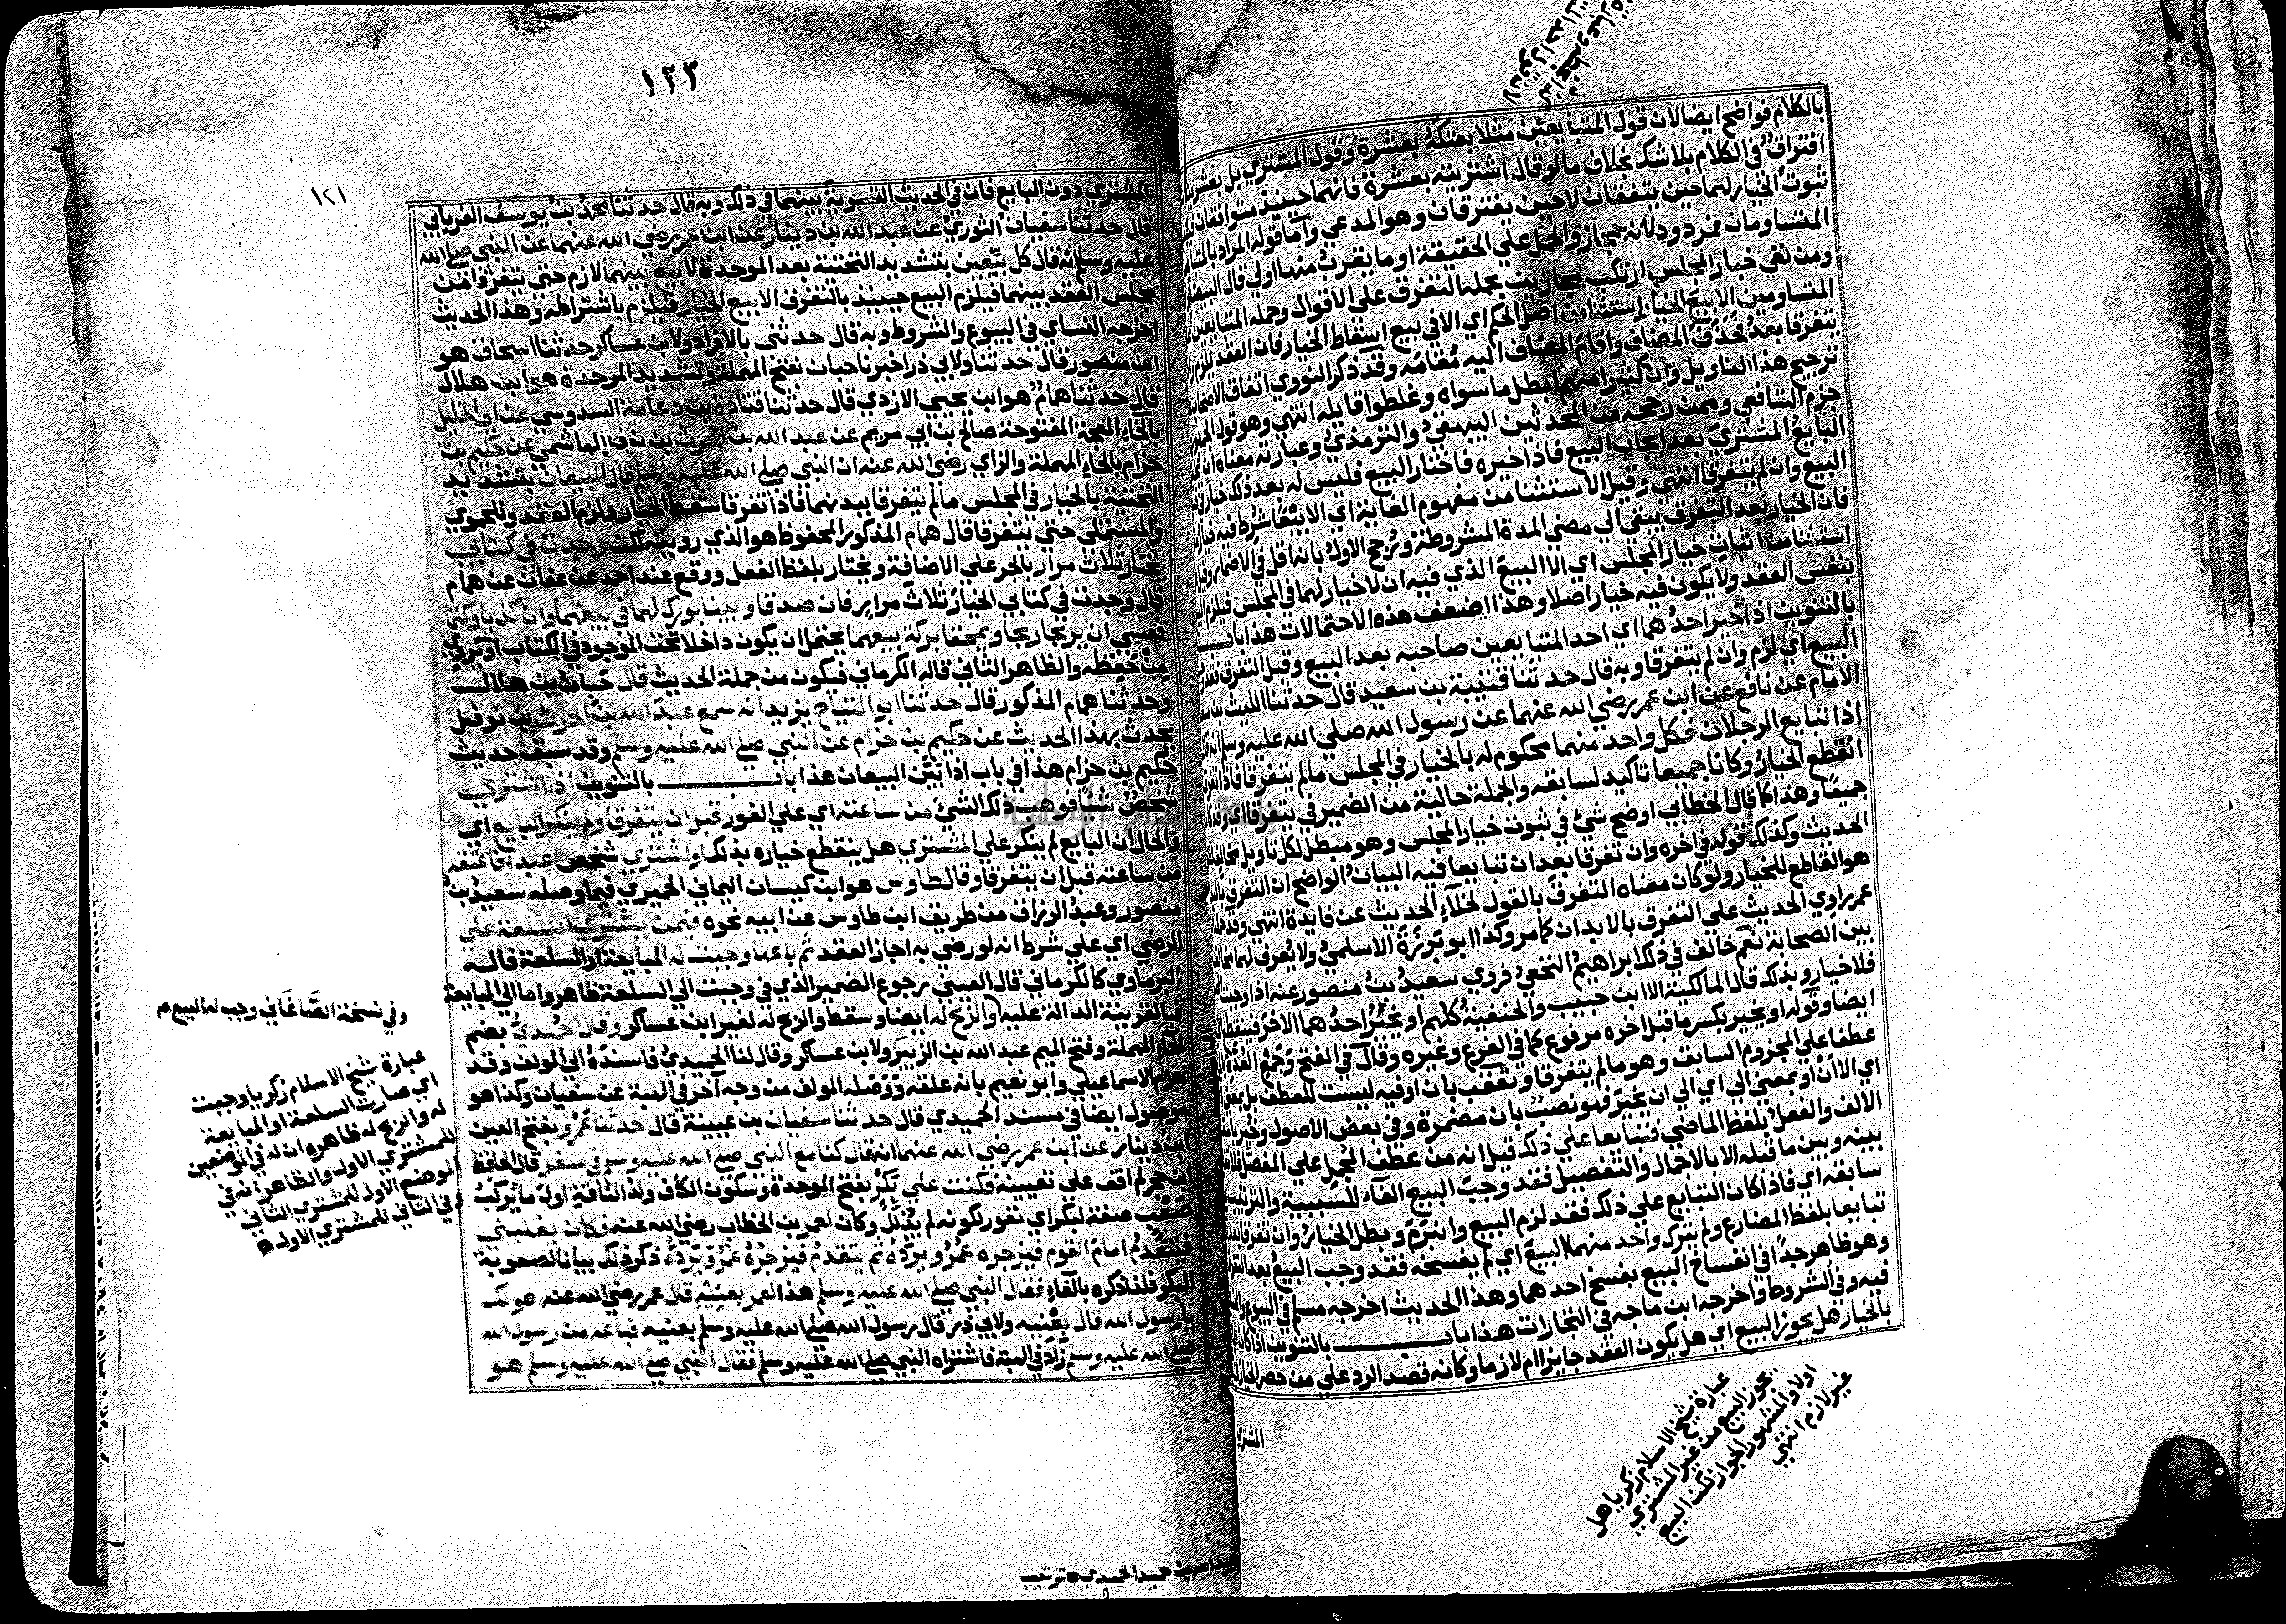 بالكلام فواضح ايضا لان قول المتبايعين مثلا بعتكه بعشرة وقول المشتري بل بعشرين
افتراق في الكلام بلا شك بخلاف ما لو قال اشتريته بعشرة فانهما حينئذ متوافقان
ثبوت الخيار لهما حين يتفقان لا حين يفترقان وهو المدعي واما قوله المراد بالمتبايعين
المتساومان فمردود لانه مجاز والحمل علي الحقيقة او ما يقرب منها اولي قال البيضاوي
ومن نفي خيار المجلس ارتكب مجازين بحمله التفرق علي الاقوال وحمله المتبايعين
المتساومين الا بيع الخيار استثنا من اصل الحكم اي الا في بيع اسقاط الخيار فان العقد يلزم
يتفرقا بعد فحذف المضاف واقام المضاف اليه مقامه وقد ذكر النووي اتفاق الاصحاب
ترجيح هذا التاويل وان كثيرا منهم ابطل ما سواه وغلطوا قايله انتهي وهو قول
جزم الشافعي وممن رجحه من المحدثين البيهقي والترمذي وعبارته معناه ان
البايع المشتري بعد ايجاب البيع فاذا خيره فاختار البيع فليس له بعد ذلك خيار
البيع وان لم يتفرقا انتهي وقيل الاستثنا من مفهوم الغاية اي الا بيعا شرط فيه خيار
فان الخيار بعد التفرق يبقي الي مضي المدة المشروطة ورجح الاول بانه اقل في الاضمار وقيل
استثنا من اثبات خيار المجلس اي الا البيع الذي فيه ان لا خيار لهما في المجلس فيلزم البيع
بنفس العقد ولا يكون فيه خيار اصلا وهذا اضعف هذه الاحتمالات هذا باب
بالتنوين اذا خير احدهما اي احد المتبايعين صاحبه بعد البيع وقبل التفرق فقد
البيع اي لزم وان لم يتفرقا وبه قال حدثنا قتيبة بن سعيد قال حدثنا الليث بن سعد
الامام عن نافع عن ابن عمر رضي الله عنهما عن رسول الله صلي الله عليه وسلم انه قال
اذا تبايع الرجلان فكل واحد منهما محكوم له بالخيار في المجلس ما لم يتفرقا فاذا
انقطع الخيار وكانا جميعا تاكيد لسابقه والجملة حالية من الضمير في يتفرقا اي وقد كانا
جميعا وهذا كما قال الخطابي اوضح شئ في ثبوت خيار المجلس وهو مبطل لكل تاويل مخالف
الحديث وكذلك قوله في اخره وان تفرقا بعد ان تبايعا فيه البيان الواضح ان التفرق
هو القاطع للخيار ولو كان معناه التفرق بالقول لخلا الحديث عن فايدة انتهي وقد
عمر راوي الحديث علي التفرق بالابدان كما مر وكذا ابو برزة الاسلمي ولا يعرف لهما مخالف
بين الصحابة نعم خالف في ذلك ابراهيم النخعي فروي سعيد بن منصور عنه اذا وجبت
فلا خيار وبذلك قال المالكية الا ابن حبيب والحنفية كلهم او يخير احدهما الاخر فينقطع
ايضا وقوله او يخير بكسر ما قبل اخره مرفوع كما في الفرع وغيره وقال في الفتح وجمع العدة
عطفا علي المجزوم السابق وهو ما لم يتفرقا وتعقب بان او فيه ليست للعطف بل بمعني
الي الا ان او بمعني الي اي الي ان يخير فهو نصب بان مضمرة وفي بعض الاصول وخير باسقاط
الالف والفعل بلفظ الماضي فتبايعا علي ذلك قيل انه من عطف المجمل علي المفصل فلا
بينه وبين ما قبله الا بالاجمال والتفصيل فقد وجب البيع الفاء للسببية والترتيب
سابقه اي فاذا كان التبايع علي ذلك فقد لزم البيع وانبرم وبطل الخيار وان تفرقا بعد
تبايعا بلفظ المضارع ولم يترك واحد منهما البيع اي لم يفسخه فقد وجب البيع بعد التفرق
وهو ظاهر جدا في انفساخ البيع بفسخ احدهما وهذا الحديث اخرجه مسلم في البيوع
فيه وفي الشروط واخرجه ابن ماجه في التجارات هذا باب بالتنوين اذا كان
بالخيار هل يجوز البيع اي هل يكون العقد جايزا ام لازما وكانه قصد الرد علي من حصر الخيار
المشتري
عبارة شيخ الاسلام زكريا هل
يجوز البيع من غير المشتري
اولا والمشهور الجواز لكن البيع
غير لازم انتهي
١٣٣
١٢١
المشتري دون البايع فان في الحديث التسوية بينهما في ذلك وبه قال حدثنا محمد بن يوسف الفريابي
قال حدثنا سفيان الثوري عن عبد الله بن دينار عن ابن عمر رضي الله عنهما عن النبي صلي الله
عليه وسلم انه قال كل بيعين بتشديد التحتية بعد الموحدة لا بيع بينهما لازم حتي يتفرقا من
مجلس العقد بينهما فيلزم البيع حينئذ بالتفرق الا بيع الخيار فيلزم باشتراطه وهذا الحديث
اخرجه النساي في البيوع والشروط وبه قال حدثني بالافراد ولابن عساكر حدثنا اسحاق هو
ابن منصور قال حدثنا ولابي ذر اخبرنا حبان بفتح المهملة وتشديد الموحدة هو ابن هلال
قال حدثنا همام هو ابن يحيي الازدي قال حدثنا قتادة بن دعامة السدوسي عن ابي الخليل
بالخاء المعجمة المفتوحة صالح بن ابي مريم عن عبد الله بن الحرث بن نوفل الهاشمي عن حكيم بن
حزام بالحاء المهملة والزاي رضي الله عنه ان النبي صلي الله عليه وسلم قال البيعان بتشديد
التحتية بالخيار في المجلس ما لم يتفرقا ببدنهما فاذا تفرقا سقط الخيار ولزم العقد وللحموي
والمستملي حتي يتفرقا قال همام المذكور المحفوظ هو الذي رويته لكن وجدت في كتابي
يختار ثلاث مرار بالجر علي الاضافة ويختار بلفظ الفعل ووقع عند احمد عن عفان عن همام
قال وجدت في كتابي الخيار ثلاث مرار فان صدقا وبينا بورك لهما في بيعهما وان كذبا وكتما
فعسي ان يربحا ربحا ويمحقا بركة بيعهما يحتمل ان يكون داخلا تحت الموجود في الكتاب او يروي
من حفظه والظاهر الثاني قاله الكرماني فيكون من جملة الحديث قال حبان بن هلال
وحدثنا همام المذكور قال حدثنا ابو التياح يزيد انه سمع عبد الله بن الحرث بن نوفل
يحدث بهذا الحديث عن حكيم بن حزام عن النبي صلي الله عليه وسلم وقد سبق حديث
حكيم بن حزام هذا في باب اذا بين البيعان هذا باب بالتنوين اذا اشتري
شخص شيئا فوهب ذلك الشئ من ساعته اي علي الفور قبل ان يتفرقا ولم ينكر البايع اي
والحال ان البايع لم ينكر علي المشتري هل ينقطع خياره بذلك او اشتري شخص عبدا فاعتقه
من ساعته قبل ان يتفرقا وقال طاوس هو ابن كيسان اليماني الحميري فيما وصله سعيد بن
منصور وعبد الرزاق من طريق ابن طاوس عن ابيه نحوه فيمن يشتري السلعة علي
الرضي اي علي شرط انه لو رضي به اجاز العقد ثم باعها وجبت له المبايعة او السلعة قاله
البرماوي كالكرماني قال العيني رجوع الضمير الذي في وجبت الي السلعة ظاهر واما الي المبايعة
فبالقرينة الدالة عليه والربح له ايضا وسقط والربح له لغير ابن عساكر وقال الحميدي بضم
الحاء المهملة وفتح الميم عبد الله بن الزبير ولابن عساكر وقال لنا الحميدي فاسنده الي المولف وقد
جزم الاسماعيلي وابو نعيم بانه علقه ووصله المولف من وجه آخر في الهبة عن سفيان وكذا هو
موصول ايضا في مسند الحميدي قال حدثنا سفيان بن عيينة قال حدثنا عمرو بفتح العين
ابن دينار عن ابن عمر رضي الله عنهما انه قال كنا مع النبي صلي الله عليه وسلم في سفر قال الحافظ
ابن حجر لم اقف علي تعيينه فكنت علي بكر بفتح الموحدة وسكون الكاف ولد الناقة اول ما يركب
صعب صفة لبكر اي نفور لكونه لم يذلل وكان لعمر بن الخطاب رضي الله عنه فكان يغلبني
فيتقدم امام القوم فيزجره عمر ويرده ثم يتقدم فيزجره عمر ويرده ذكر ذلك بيانا لصعوبة
البكر فلذا ذكره بالفاء فقال النبي صلي الله عليه وسلم هذا لعمر بعنيه قال عمر رضي الله عنه هو لك
يا رسول الله قال بعنيه ولابي ذر قال رسول الله صلي الله عليه وسلم بعنيه فباعه من رسول الله
صلي الله عليه وسلم زاد في الهبة فاشتراه النبي صلي الله عليه وسلم فقال النبي صلي الله عليه وسلم هو
وفي نسخة الصغاني وجب له البيع م
عبارة شيخ الاسلام زكريا وجبت
اي صارت السلعة او المبايعة
له والربح له ظاهره ان له في الموضعين
للمشتري الاول والظاهر انه في
الموضع الاول للمشتري الثاني
وفي الثاني للمشتري الاول